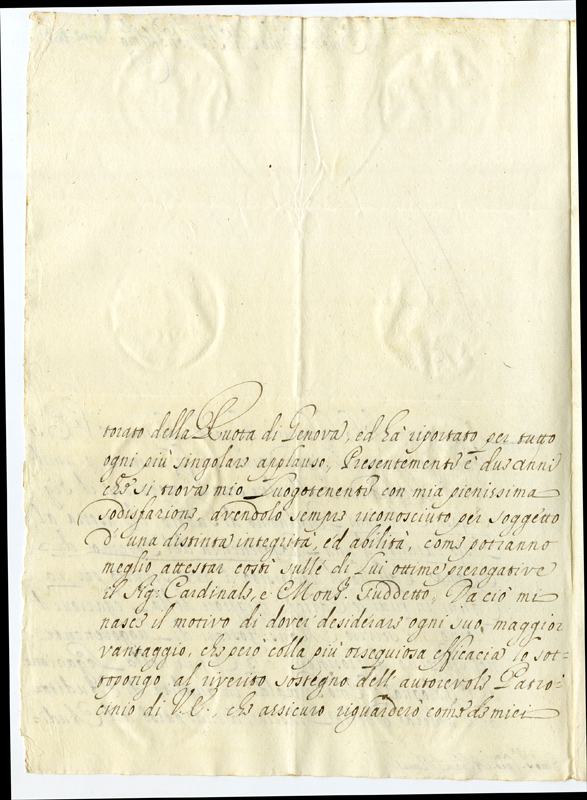 torato della Ruota di Genova, ed hà riportato per tutto
ogni più singolare applauso, Presentemente è due anni
che si trova mio Luogotenente con mia pienissima
sodisfazione, avendolo sempre riconosciuto per soggetto
d'una distinta integrità, ed abilità, come potranno
meglio attestar costì sulle di Lui ottime prerogative
il Sig: Cardinale, e Mons.r Suddetto, Da ciò mi
nasce il motivo di dover desiderare ogni suo maggior
vantaggio, che però colla più ossequiosa efficacia lo sot-
topongo al riverito sostegno dell'autorevole Patro-
cinio di V.E., che assicuro riguarderò come de miei